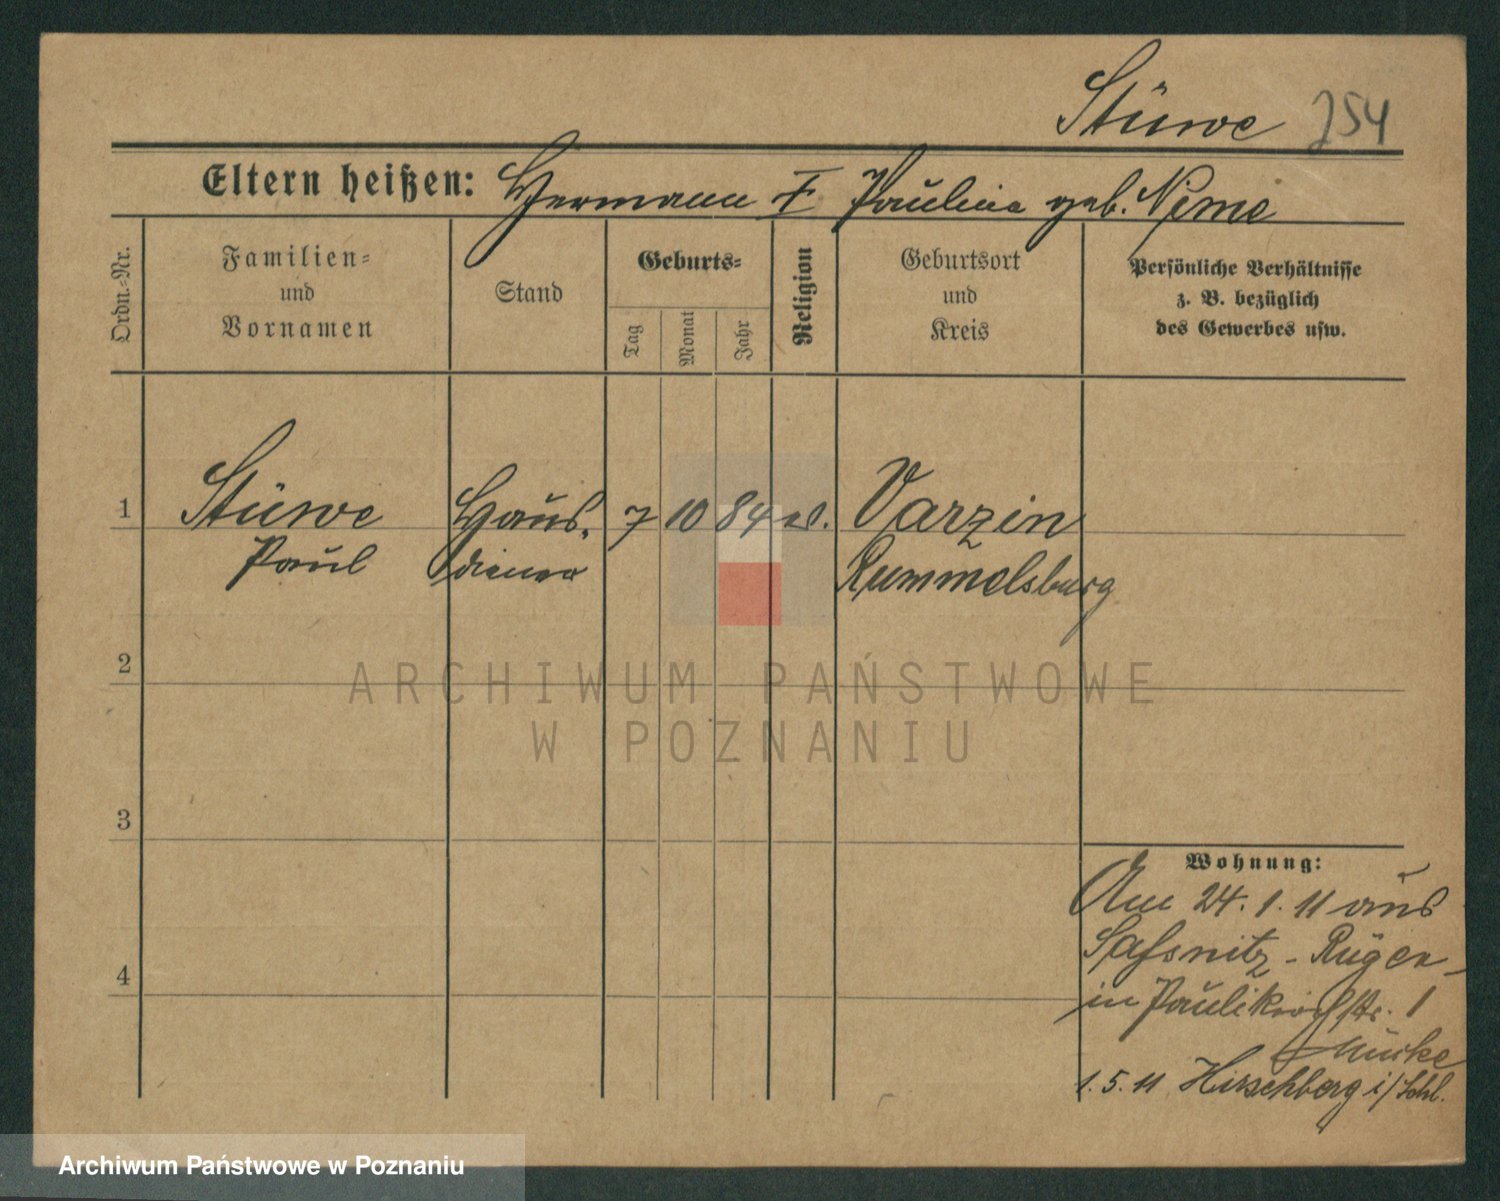 Stüwe 254
Eltern heißen: Hermann Pauline geb. Neme
Ordn.-Nr.
Familien-
und
Vornamen
Stand
Geburts-
Tag
Monat
Jahr
Religion
Geburtsort
und
Kreis
Persönliche Verhältnisse
z. B. bezüglich
des Gewerbes usw.
1 Stüwe Haus- 7 10 84 ev. Varzin
Paul diener Rummelsburg
2
3
4
Wohnung:
Am 24. 1. 11 aus
Saßnitz - Rügen
in Paulikirchstr. 1
1. 5. 11 Hirschberg i/Schl.
ARCHIWUM PAŃSTWOWE
W POZNANIU
Archiwum Państwowe w Poznaniu